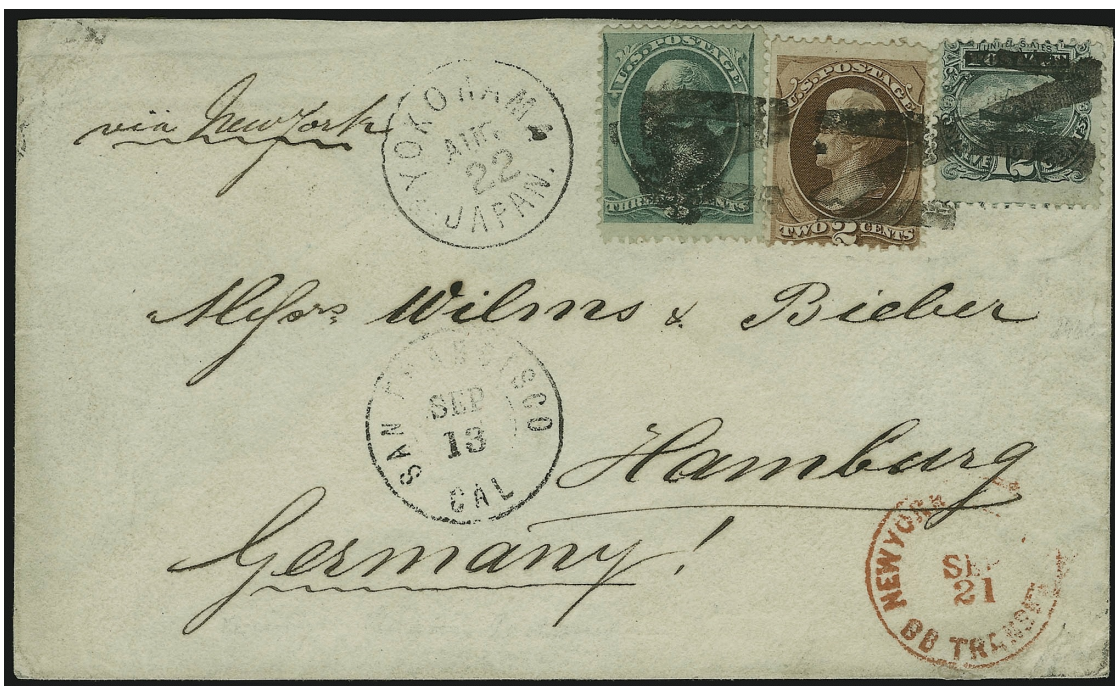 via New York
YOKOHAMA
AUG
22
JAPAN.
U.S. POSTAGE
THREE CENTS
U.S. POSTAGE
TWO 2 CENTS
UNITED STATES
POSTAGE
12
Messrs Wilms & Bieber
SAN FRANCISCO
SEP
13
CAL
Hamburg
Germany!
NEW YORK
SEP
21
BB TRANSIT